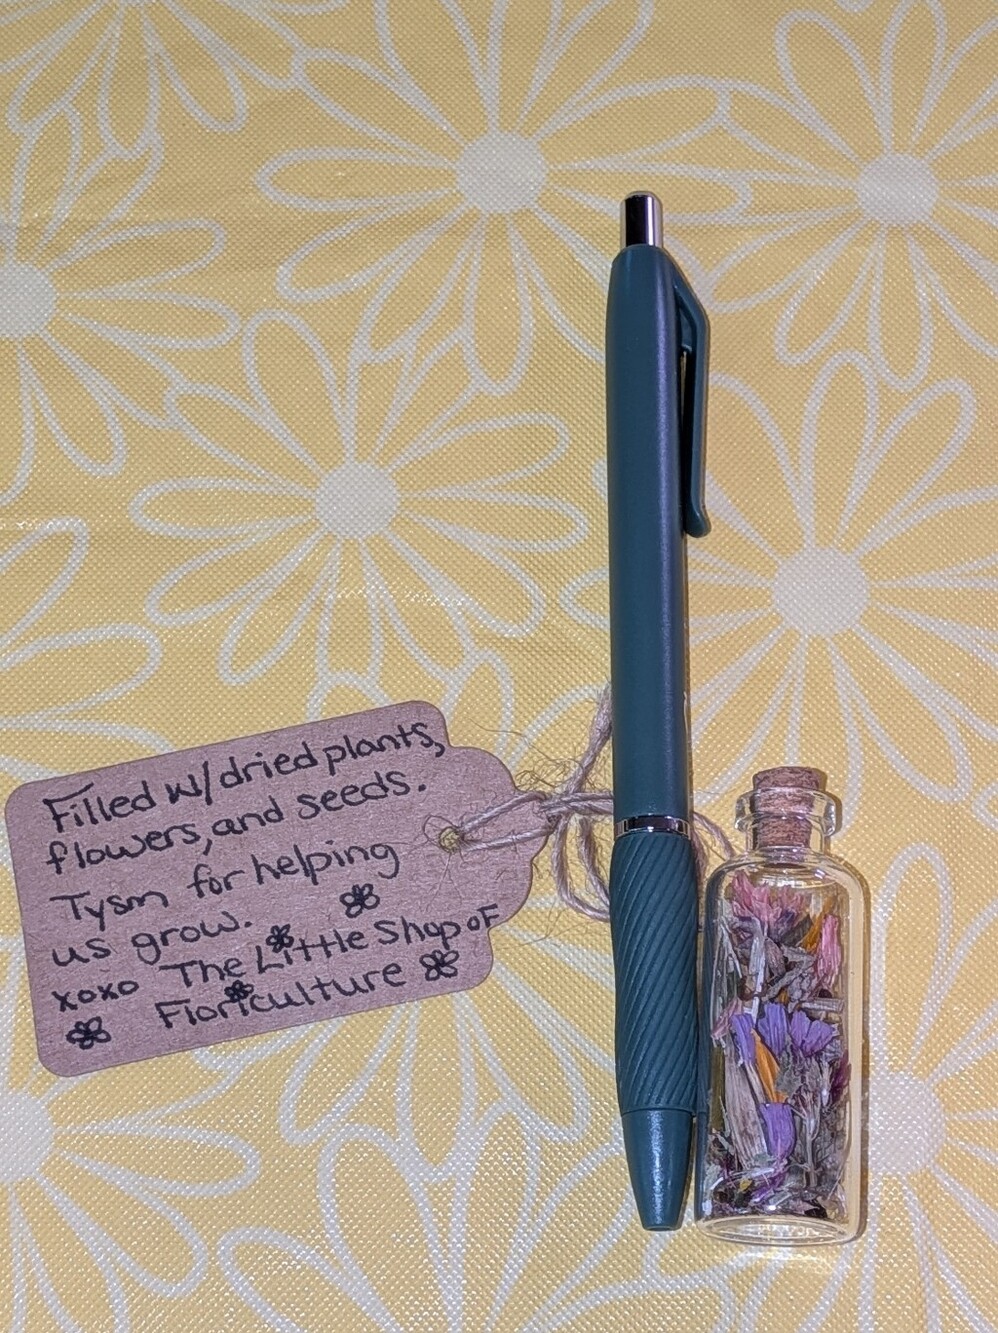 Filled w/dried plants,
flowers, and seeds.
Tysm for helping
us grow.
xoxo The Little Shop of
Floriculture